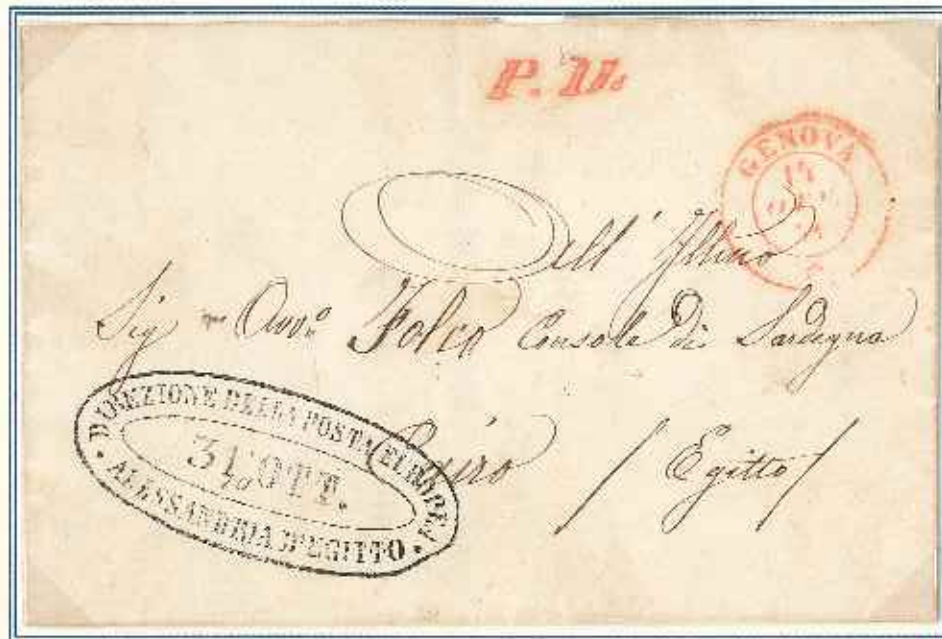 P. D.
GENOVA
14
all' Illmo
Sig re Avvo Folco Console di Sardegna
Cairo / Egitto /
DIREZIONE DELLA POSTA EUROPEA
31 OTT.
ALESSANDRIA D'EGITTO